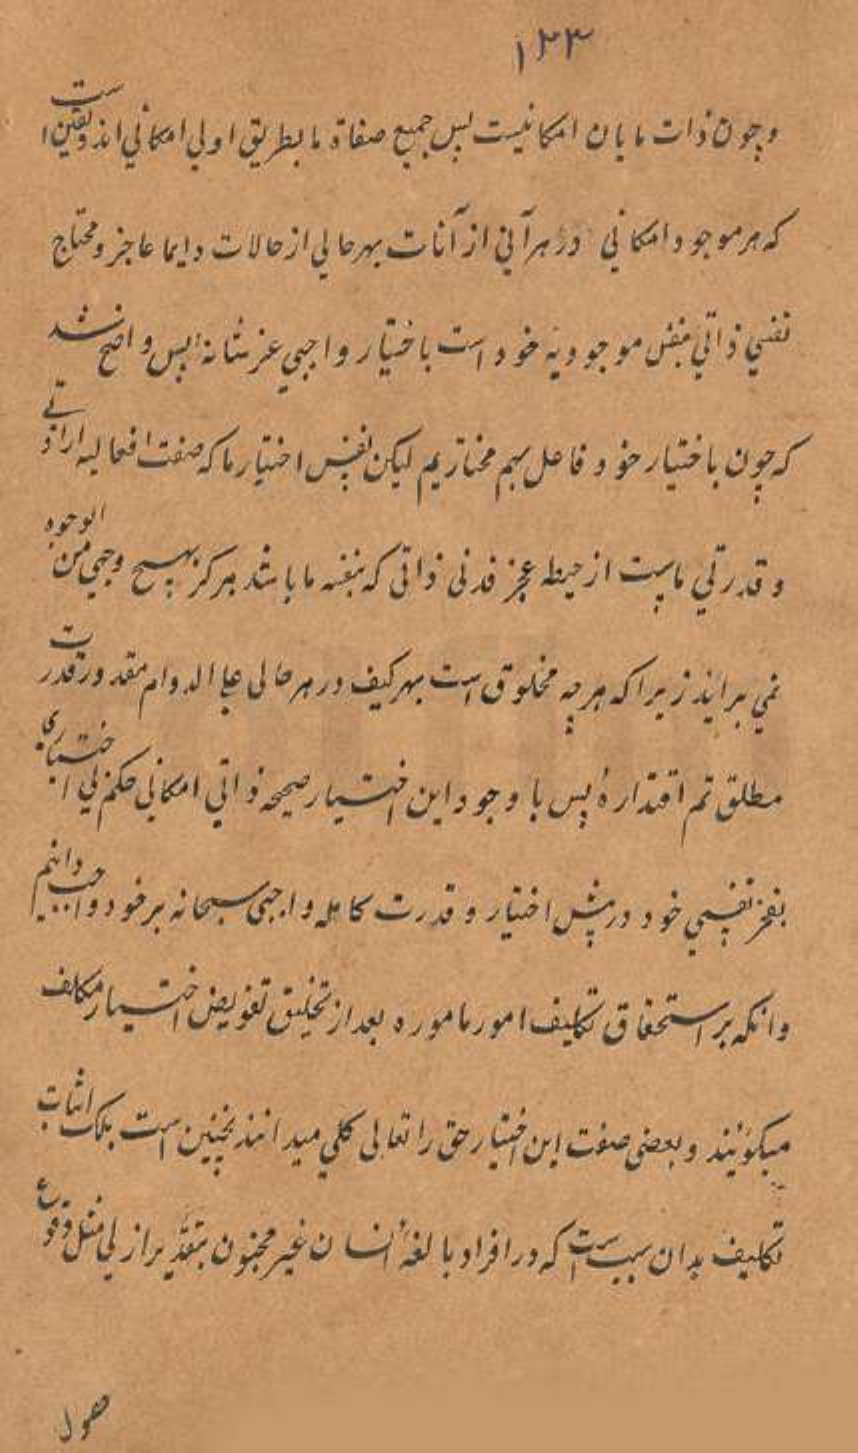 ۱۳۳
وچون ذات مایان امکانیست پس جمیع صفاة ما بطریق اولی امکانی اند و یقین است
که هر موجود امکانی در هر آنی از آنات بهر حالی از حالات دایما عاجز و محتاج
نفسی ذاتی بنفس موجودیة خود است باختیار واجبی عز شانه پس واضح شد
که چون باختیار خود فاعل هم مختاریم لیکن نفس اختیار ما که صفت افعالیه اراد تے
و قدرتی ماست از حیطه عجز ذاتی که بنفسه ما باشد هرکز بهیچ وجهی من الوجوه
نمی براید زیرا که هرچه مخلوق است بهر کیف در هر حالی علی الدوام مقدور قدرت
مطلق تم اقتداره پس با وجود این اختیار صحیحه ذاتی امکانی حکم لی اختیاری
بعجز نفسی خود در پیش اختیار و قدرت کامله واجبی سبحانه بر خود واجب دانیم
وانکه بر استحقاق تکلیف امور ماموره بعد از تخلیق تفویض اختیار مکلف
میکویند و بعضی صفت این اختیار حق را تعالی کلی میدانند نچنین است بلک اثبات
تکلیف بدان سبب است که در افراد بالغهٔ انسان غیر مجنون بتقدیر ازلی مثل وقوع